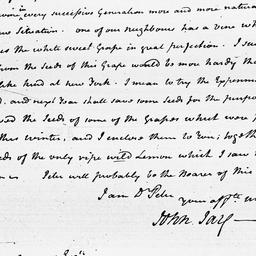 in every successive Generation more and more natural
new Situation. one of our neighbours has a vine wh
the white sweet Grape in great perfection. I su
from the Seeds of this Grape would be more hardy tha
like kind at new York. I mean to try the Experim
and next Year shall save some Seeds for the purpo
the Seeds of some of the Grapes which were
this winter, and I enclose them to you; togeth
eds of the only ripe wild Lemon which I saw
Peter will probably be the Bearer of this
I am Dr Peter
your affte
John Jay